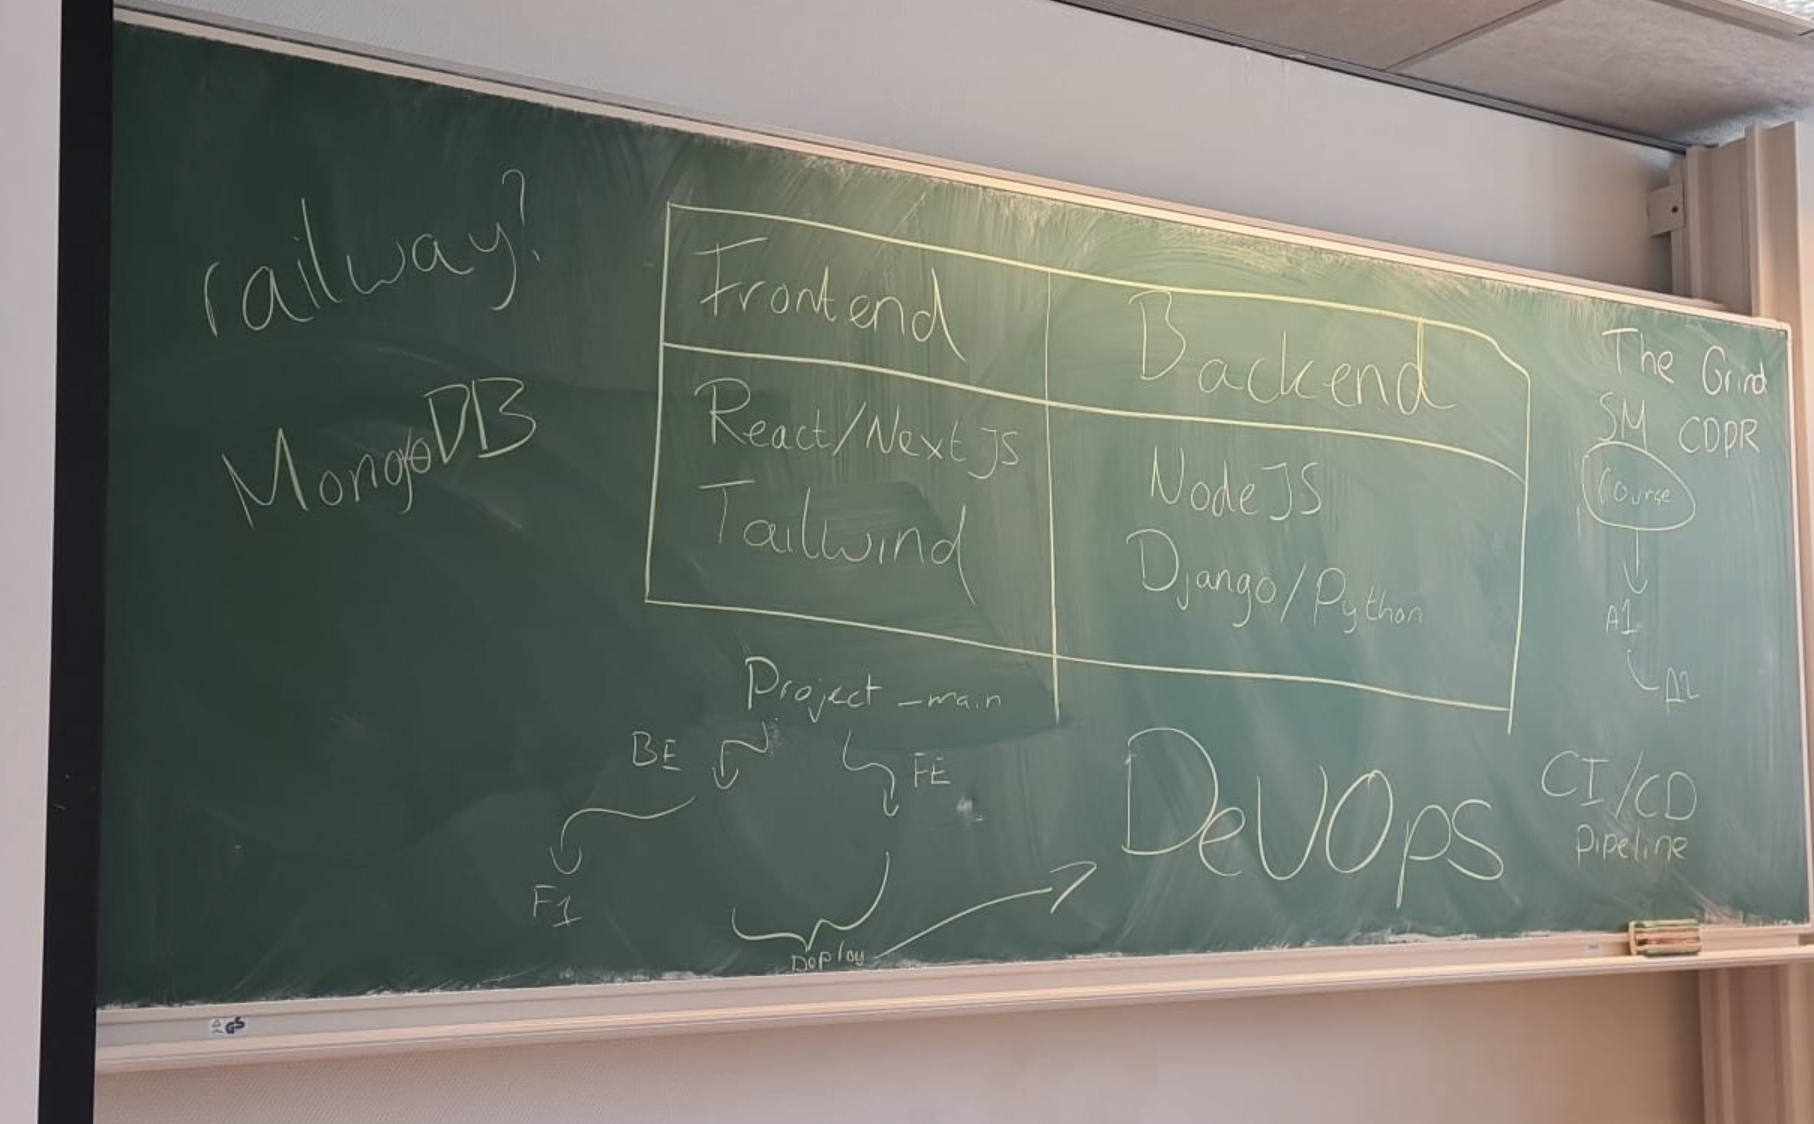 railway?
MongoDB
Frontend
Backend
React/NextJS
Tailwind
NodeJS
Django/Python
Project_main
BE
FE
F1
Deploy
DevOps
The Grind
SM CDDR
Course
A1
A2
CI/CD
Pipeline
GS